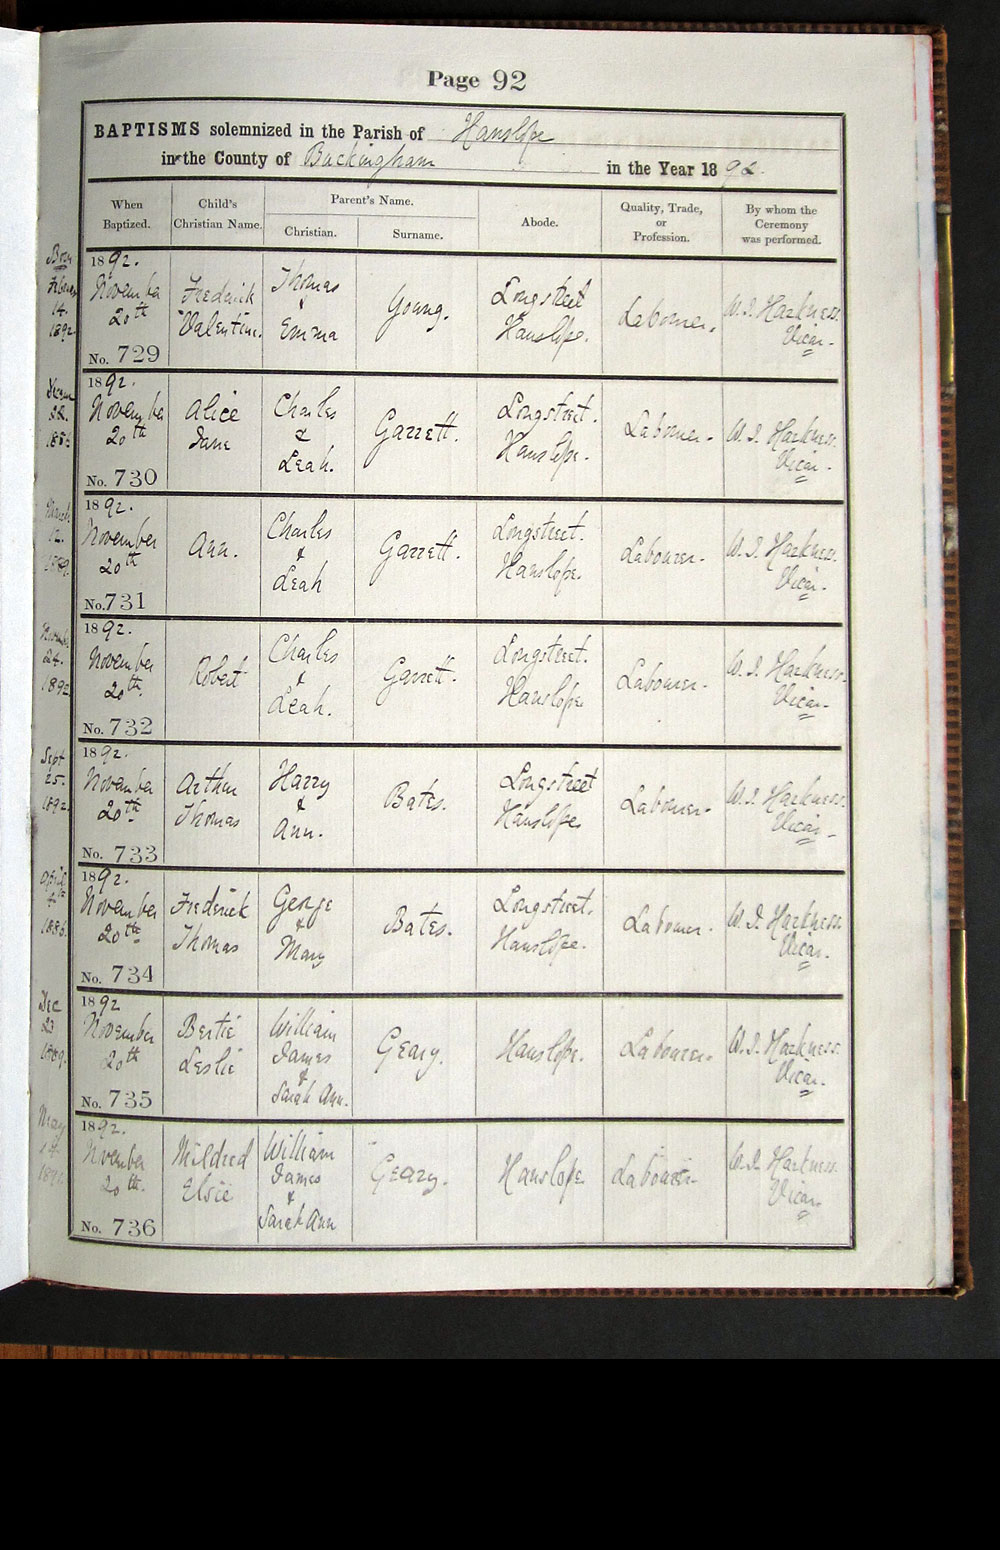 Page 92
BAPTISMS solemnized in the Parish of Hanslope
in the County of Buckingham in the Year 1892.
When Baptized.
Child's Christian Name.
Parent's Name.
Christian.
Surname.
Abode.
Quality, Trade, or Profession.
By whom the Ceremony was performed.
Born
14.
1892
1892.
November
20th
No. 729
Frederick
Valentine.
Thomas
&
Emma
Young.
Longstreet
Hanslope.
Labourer.
W. J. Harkness.
Vicar.
1892.
November
20th
No. 730
Alice
Jane
Charles
&
Leah.
Garrett.
Longstreet.
Hanslope.
Labourer.
W. J. Harkness.
Vicar.
March
12.
1892.
November
20th
No. 731
Ann.
Charles
&
Leah
Garrett.
Longstreet.
Hanslope.
Labourer.
W. J. Harkness.
Vicar.
24.
1892.
November
20th.
No. 732
Robert
Charles
&
Leah.
Garrett.
Longstreet.
Hanslope
Labourer.
W. J. Harkness.
Vicar.
Sept
25.
1892.
1892.
November
20th
No. 733
Arthur
Thomas
Harry
&
Ann.
Bates.
Longstreet
Hanslope
Labourer.
W. J. Harkness.
Vicar.
April
1892.
November
20th
No. 734
Frederick
Thomas
George
&
Mary
Bates.
Longstreet.
Hanslope.
Labourer.
W. J. Harkness.
Vicar.
Dec
23
1892
November
20th
No. 735
Bertie
Leslie
William
James
&
Sarah Ann.
Geary.
Hanslope.
Labourer.
W. J. Harkness.
Vicar.
May
1892.
November
20th.
No. 736
Mildred
Elsie
William
James
&
Sarah Ann
Geary.
Hanslope
Labourer
W. J. Harkness.
Vicar.